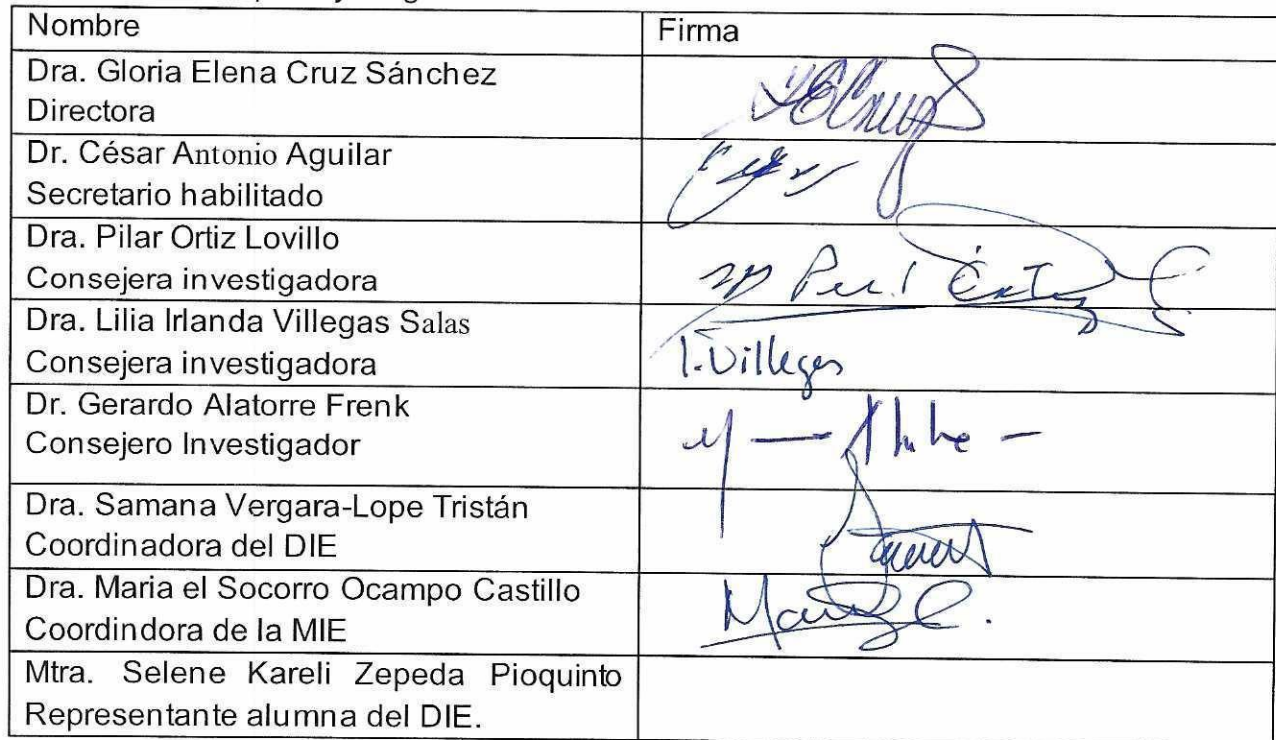 Nombre
Firma
Dra. Gloria Elena Cruz Sánchez
Directora
Dr. César Antonio Aguilar
Secretario habilitado
Dra. Pilar Ortiz Lovillo
Consejera investigadora
Dra. Lilia Irlanda Villegas Salas
Consejera investigadora
I. Villegas
Dr. Gerardo Alatorre Frenk
Consejero Investigador
Dra. Samana Vergara-Lope Tristán
Coordinadora del DIE
Dra. Maria el Socorro Ocampo Castillo
Coordindora de la MIE
Mtra. Selene Kareli Zepeda Pioquinto
Representante alumna del DIE.